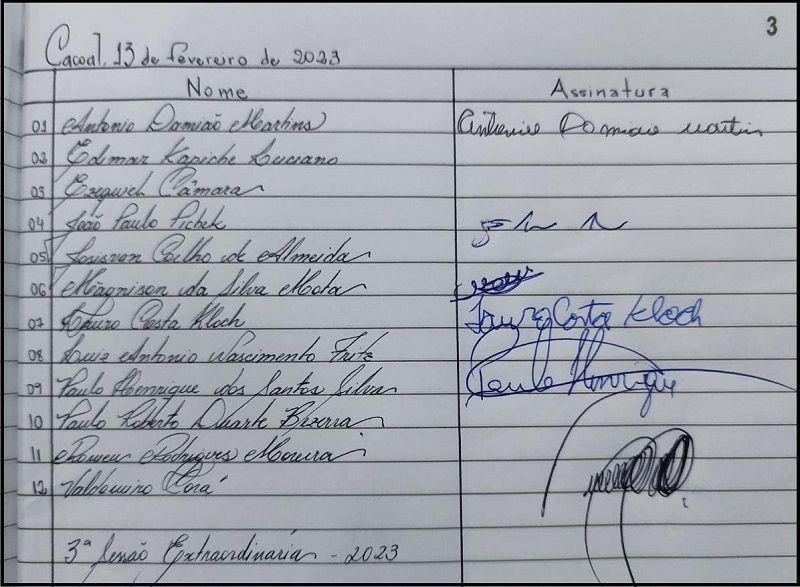 3
Cacoal, 13 de fevereiro de 2023
Nome Assinatura
01 Antonio Damião Martins Antonio Damião Martin
02 Edimar Kapiche Luciano
03 Ezequiel Câmara
04 João Paulo Pichek
05 Josivan Coelho de Almeida
06 Magnison da Silva Mota
07 Lauro Costa Kloch Lauro Costa Kloch
08 Luiz Antonio Nascimento Fritz
09 Paulo Henrique dos Santos Silva Paulo Henrique
10 Paulo Roberto Duarte Bezerra
11 Romeu Rodrigues Moreira
12 Valdomiro Corá
3ª Sessão Extraordinária - 2023